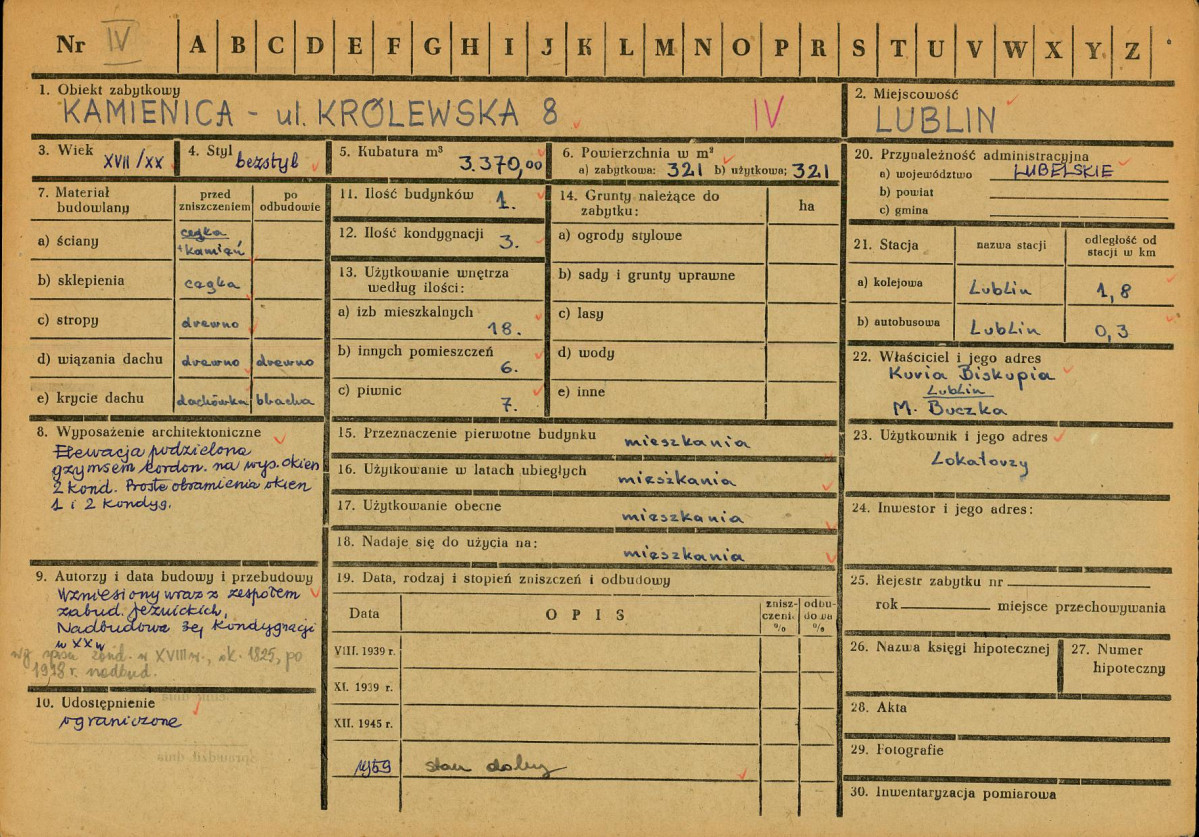 Nr IV A B C D E F G H I J K L M N O P R S T U V W X Y Z
1. Obiekt zabytkowy
KAMIENICA - ul. KRÓLEWSKA 8 IV
2. Miejscowość
LUBLIN
3. Wiek XVII/XX
4. Styl bezstyl
5. Kubatura m³ 3.370,00
6. Powierzchnia w m²
a) zabytkowa: 321 b) użytkowa: 321
7. Materiał budowlany
przed zniszczeniem
po odbudowie
a) ściany cegła + kamień
b) sklepienia cegła
c) stropy drewno
d) wiązania dachu drewno drewno
e) krycie dachu dachówka blacha
8. Wyposażenie architektoniczne
Elewacja podzielona
gzymsem kordon. na wys. okien
2 kond. Proste obramienia okien
1 i 2 kondyg.
9. Autorzy i data budowy i przebudowy
Wzniesiony wraz z zespołem
zabud. jezuickich,
Nadbudowa 3ej kondygnacji
w XX w
w XVIII w., ok. 1825, po
1918 r. nadbud.
10. Udostępnienie
ograniczone
11. Ilość budynków 1.
12. Ilość kondygnacji 3.
13. Użytkowanie wnętrza
według ilości:
a) izb mieszkalnych
18.
b) innych pomieszczeń
6.
c) piwnic
7.
14. Grunty należące do
zabytku:
ha
a) ogrody stylowe
b) sady i grunty uprawne
c) lasy
d) wody
e) inne
15. Przeznaczenie pierwotne budynku mieszkania
16. Użytkowanie w latach ubiegłych mieszkania
17. Użytkowanie obecne mieszkania
18. Nadaje się do użycia na: mieszkania
19. Data, rodzaj i stopień zniszczeń i odbudowy
Data
OPIS
znisz-
czeni.
%
odbu-
dowa
%
VIII. 1939 r.
XI. 1939 r.
XII. 1945 r.
1959 stan dobry
20. Przynależność administracyjna
a) województwo LUBELSKIE
b) powiat
c) gmina
21. Stacja
nazwa stacji
odległość od
stacji w km
a) kolejowa Lublin 1,8
b) autobusowa Lublin 0,3
22. Właściciel i jego adres
Kuria Biskupia
Lublin
M. Buczka
23. Użytkownik i jego adres
Lokatorzy
24. Inwestor i jego adres:
25. Rejestr zabytku nr
rok miejsce przechowywania
26. Nazwa księgi hipotecznej
27. Numer
hipoteczny
28. Akta
29. Fotografie
30. Inwentaryzacja pomiarowa